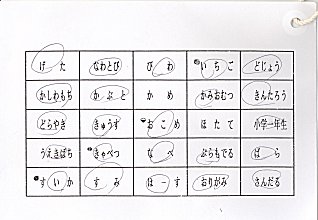 げた なわとび びわ いちご どじょう
かしわもち かぶと かめ かみおむつ きんたろう
どらやき きゅうす おこめ ほたて 小学一年生
うえきばち きゃべつ なべ ぷらもでる ばら
すいか すみ ほーす おりがみ さんだる